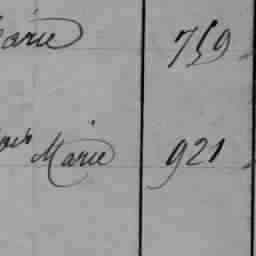 Marie 759
Marie 921